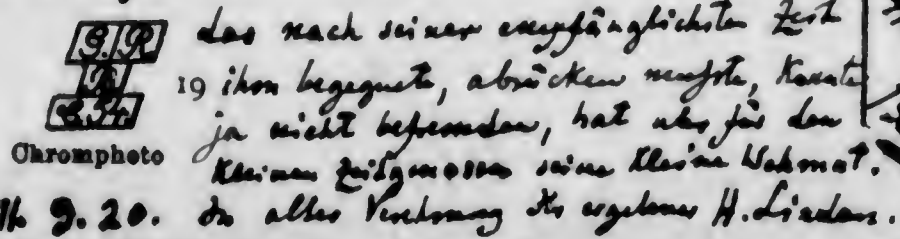 das nach seiner empfänglichsten Zeit
19 ihm begegnete, abrücken mußte, konnte
ja nicht befremden, hat aber für den
Chromphoto
kleinen Zeitgenossen seine kleine Wehmut.
9.20. In alter Verehrung Ihr ergebener H. Lindau.